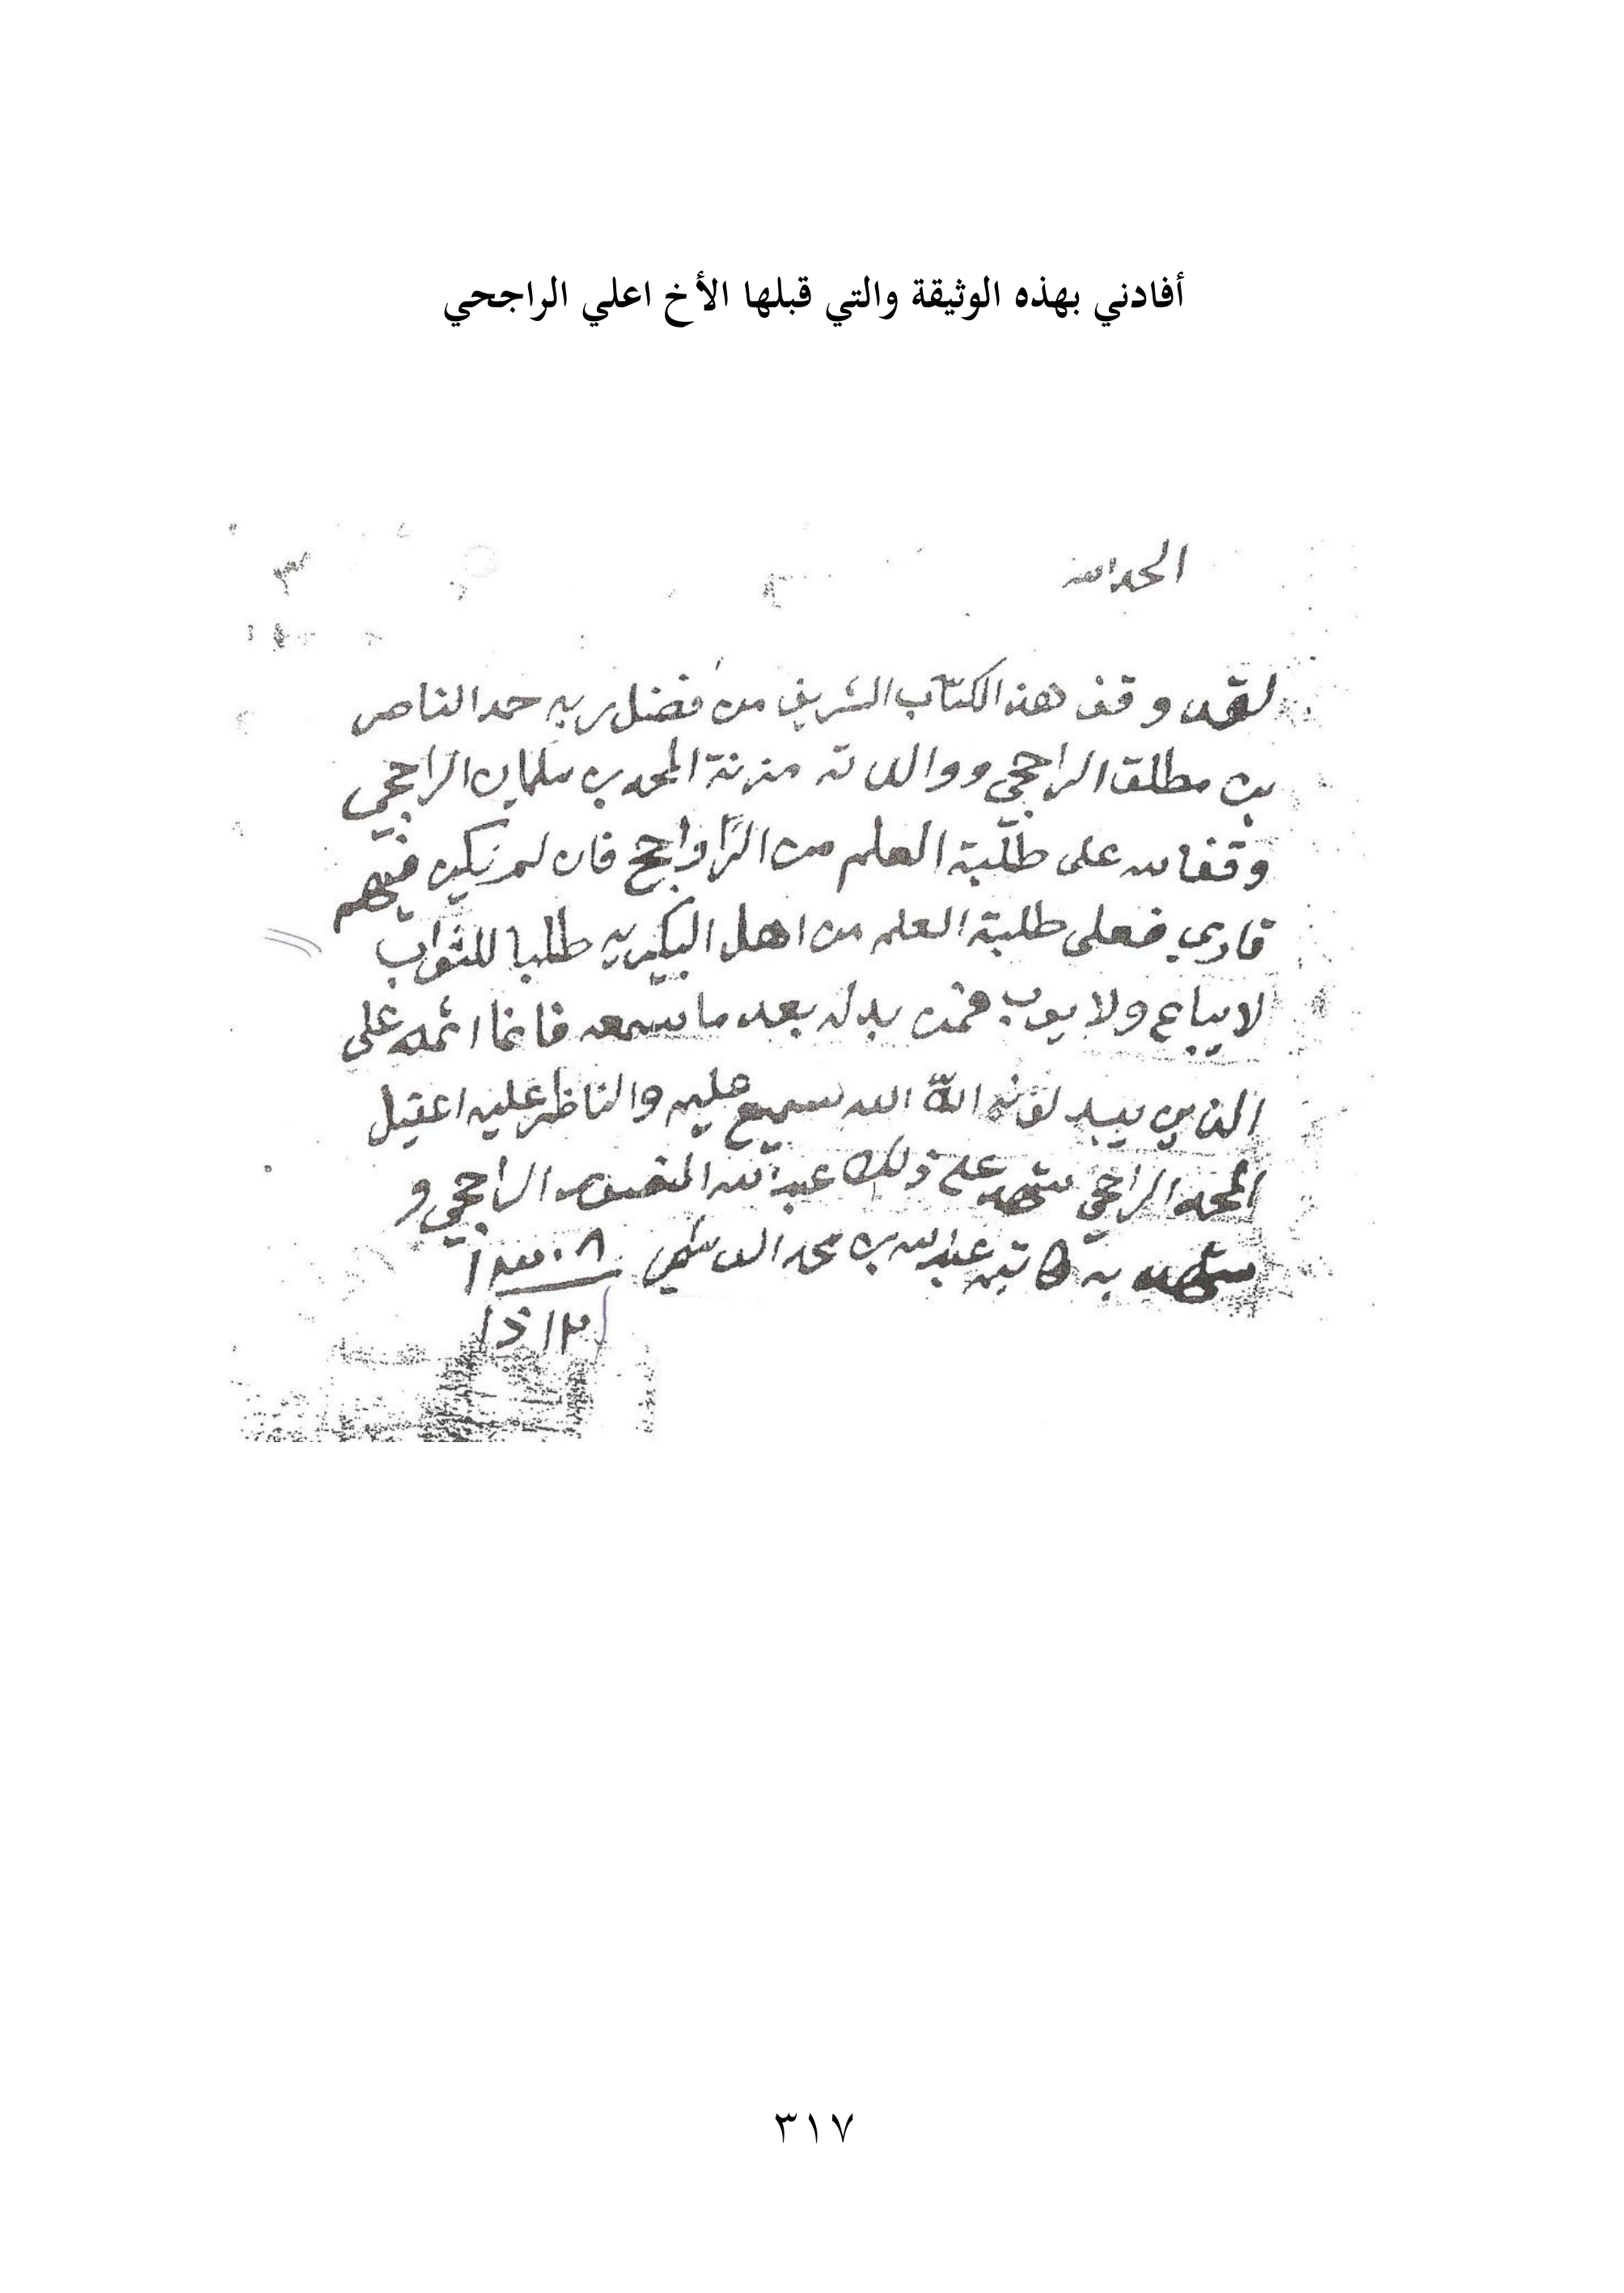 أفادني بهذه الوثيقة والتي قبلها الأخ اعلي الراجحي
الحمد لله
لقد وقف هذا الكتاب الشريف من فضل ربه حمد الناصر
بن مطلق الراجحي ووالدته مزنة المحمد بن سلمان الراجحي
وقفا لله على طلبة العلم من الرواجح فان لم يكن فيهم
قاري فعلى طلبة العلم من اهل البكيريه طلبا للثواب
لا يباع ولا يوب فمن بدله بعد ما سمعه فانما اثمه على
الذين يبدلونه ان الله سميع عليم والناظر عليه اعقيل
المحمد الراجحي شهد على ذلك عبد الله المنصور الراجحي و
شهد به كاتبه عبد الله بن محمد
٣١٧